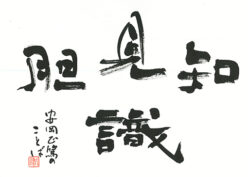 知見胆
識
安岡正篤の
ことば